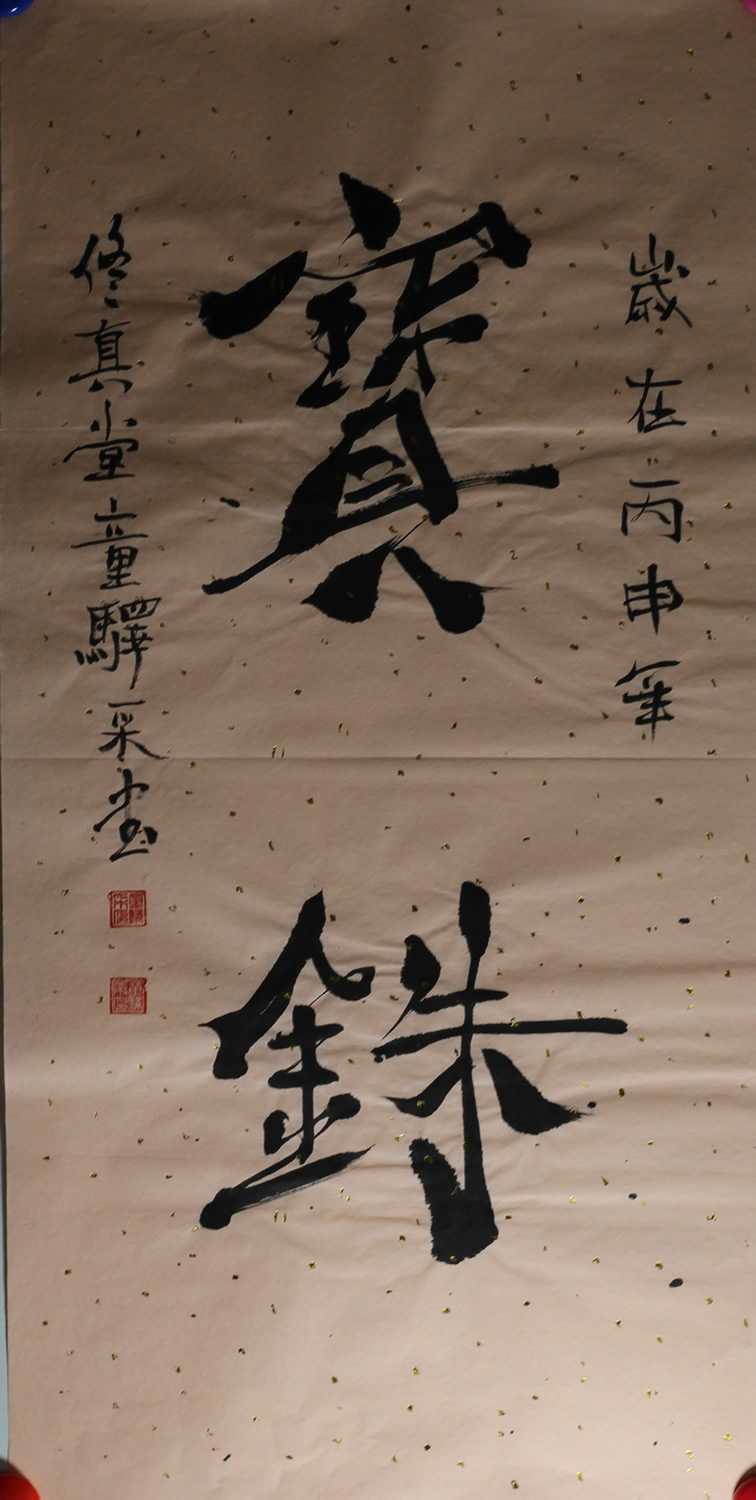 歲在丙申年
寶銖
修真堂童驛采書